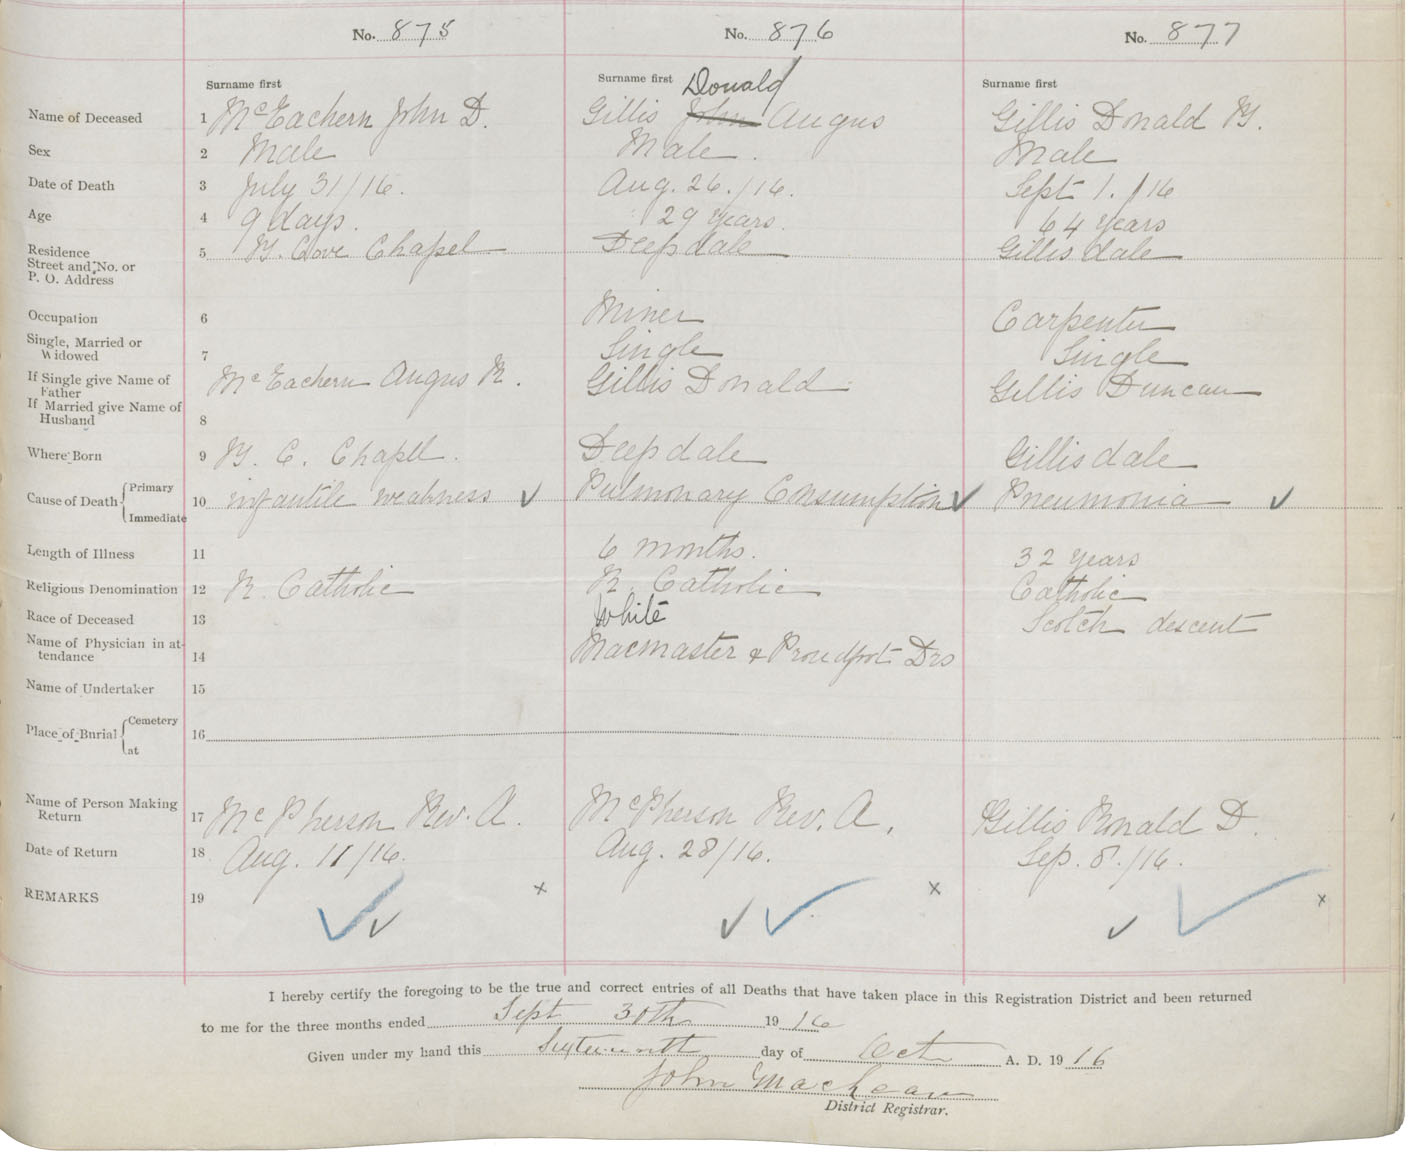 No. 875 No. 876 No. 877
Surname first Surname first Donald Surname first
Name of Deceased 1 McEachern John D. Gillis John Angus Gillis Donald M.
Sex 2 Male Male. Male
Date of Death 3 July 31/16. Aug. 26./16. Sept 1./16
Age 4 9 days. 29 years. 64 years
Residence Street and No. or P. O. Address 5 M. Cove Chapel Deepdale Gillisdale
Occupation 6 Miner Carpenter
Single, Married or Widowed 7 Single Single
If Single give Name of Father McEachern Angus R. Gillis Donald Gillis Duncan
If Married give Name of Husband 8
Where Born 9 M. C. Chapel. Deepdale Gillisdale
Cause of Death { Primary Immediate 10 infantile weakness Pulmonary Consumption Pneumonia
Length of Illness 11 6 months. 32 years
Religious Denomination 12 R. Catholic R. Catholic Catholic
Race of Deceased 13 White Scotch descent
Name of Physician in attendance 14 Macmaster & Proudfoot Drs
Name of Undertaker 15
Place of Burial { Cemetery at 16
Name of Person Making Return 17 McPherson Rev. A. McPherson Rev. A. Gillis Ronald D.
Date of Return 18 Aug. 11/16. Aug. 28/16. Sep. 8./16.
REMARKS 19 x x x
I hereby certify the foregoing to be the true and correct entries of all Deaths that have taken place in this Registration District and been returned
to me for the three months ended Sept 30th 1916
Given under my hand this Sixteenth day of Oct A. D. 1916
John MacLean
District Registrar.